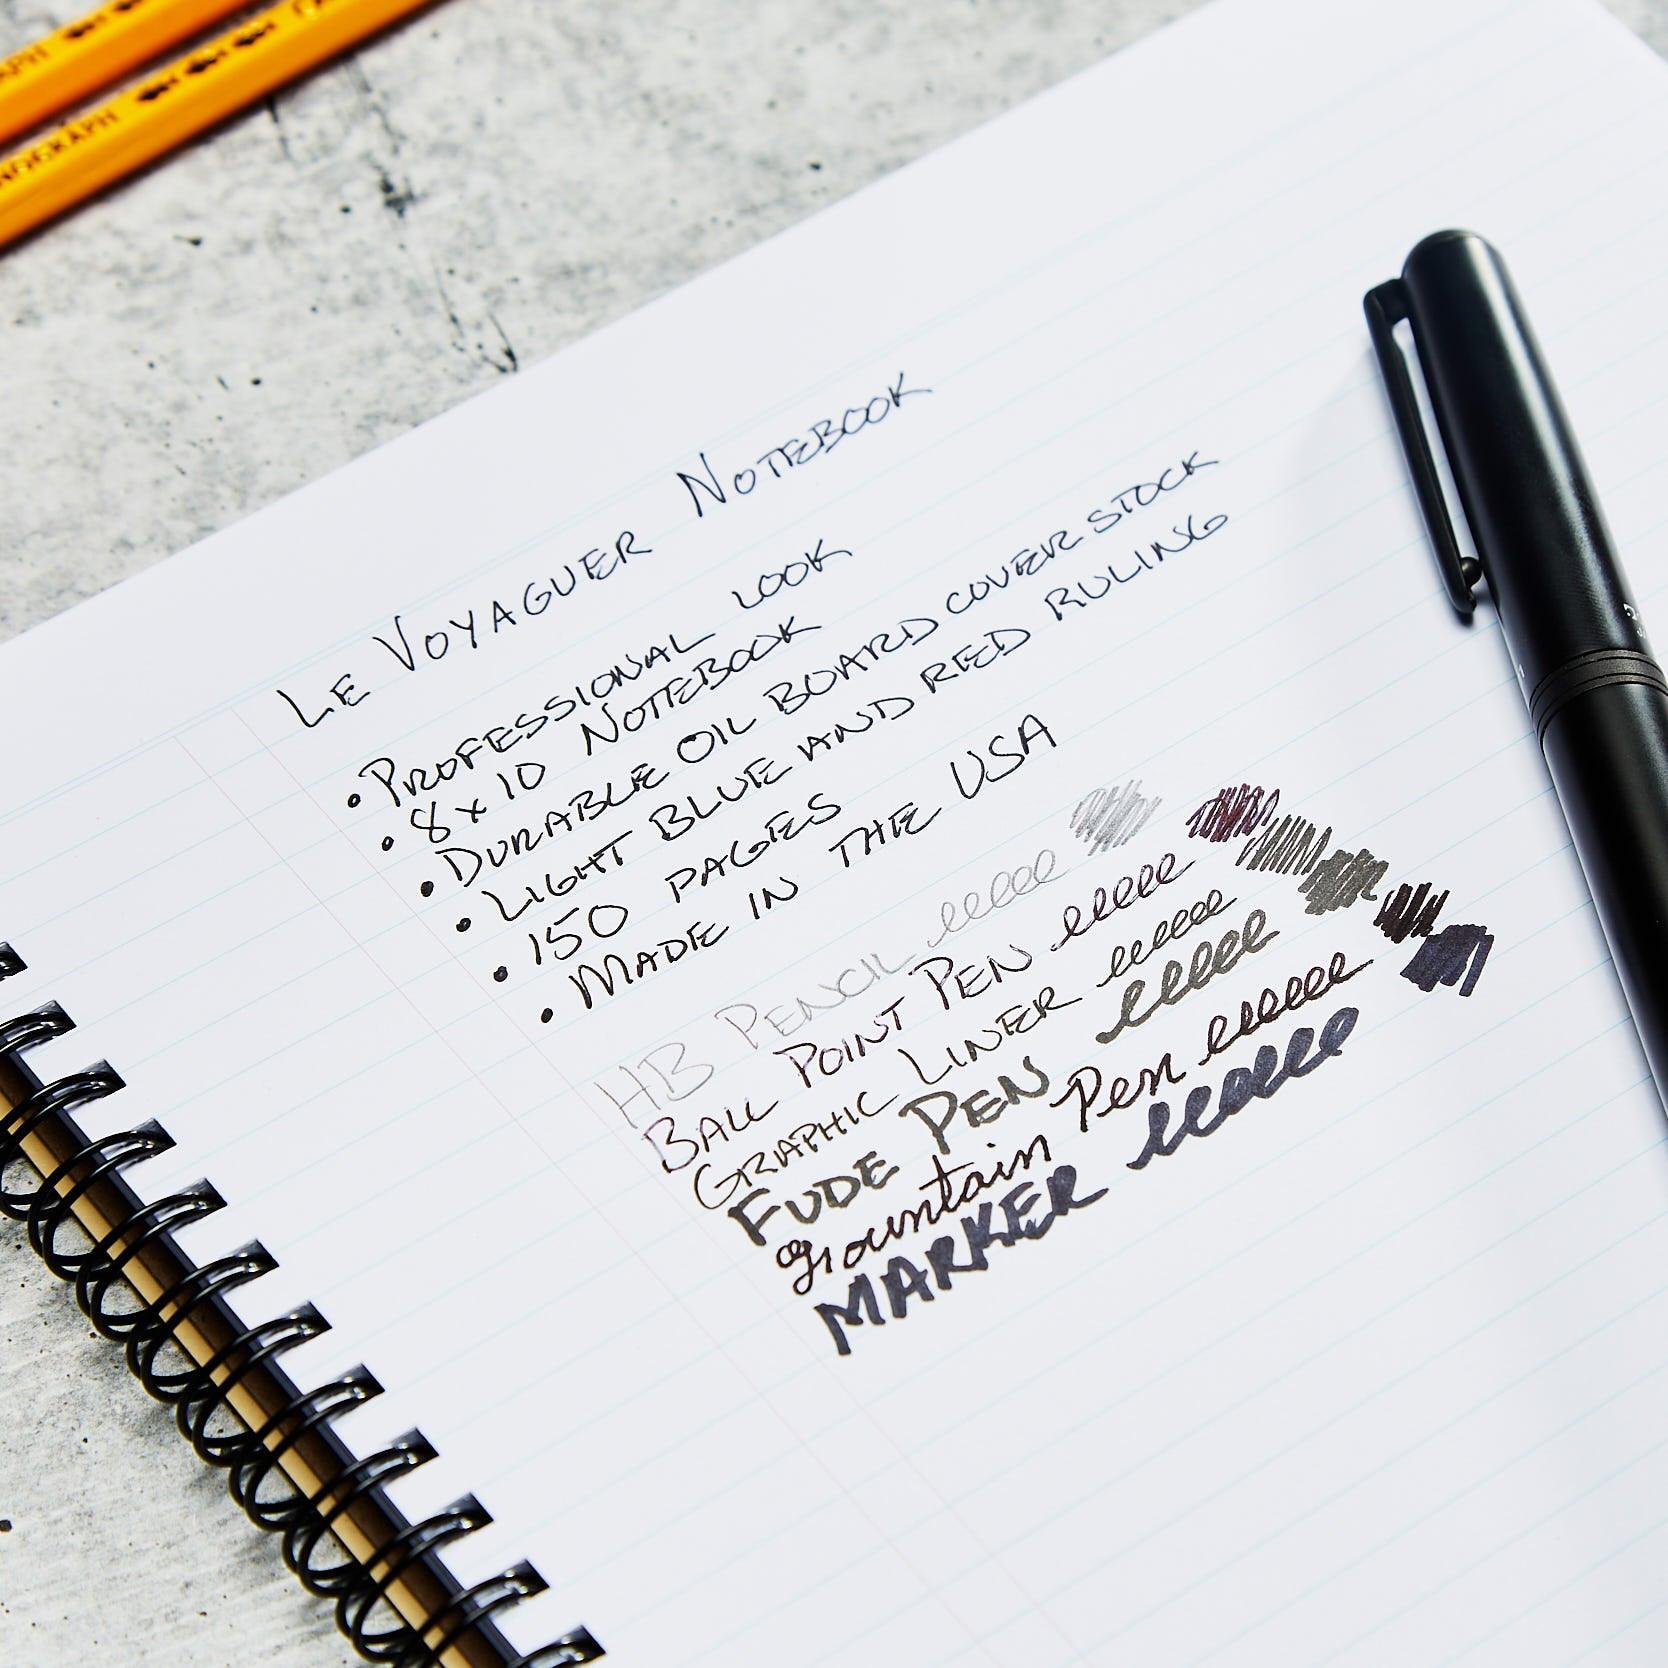 NOGRAPH
LE VOYAGUER NOTEBOOK
• PROFESSIONAL LOOK
• 8x10 NOTTEBOOK
• DURABLE OIL BOARD COVER STOCK
• LIGHT BLUE AND RED RULING
• 150 PAGES
• MADE IN THE USA
HB PENCIL
BALL POINT PEN
GRAPHIC LINER
FUDE PEN
Fountain Pen
MARKER